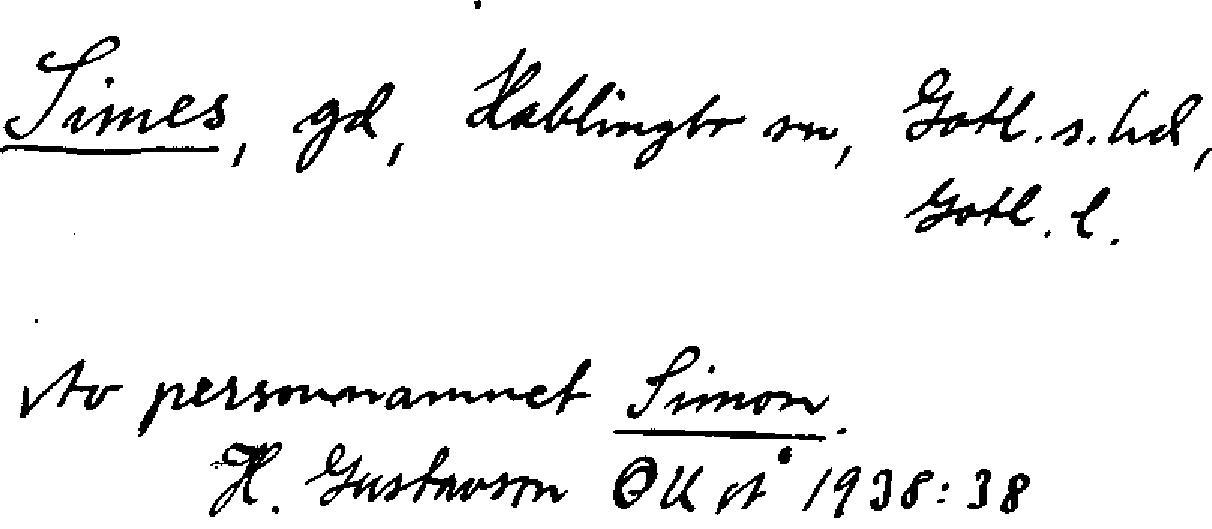 Simes, gd, Hablingbo sn, Gotl. s. hd,
Gotl. l.
Av personnamnet Simon.
H. Gustavson OUÅ 1938:38